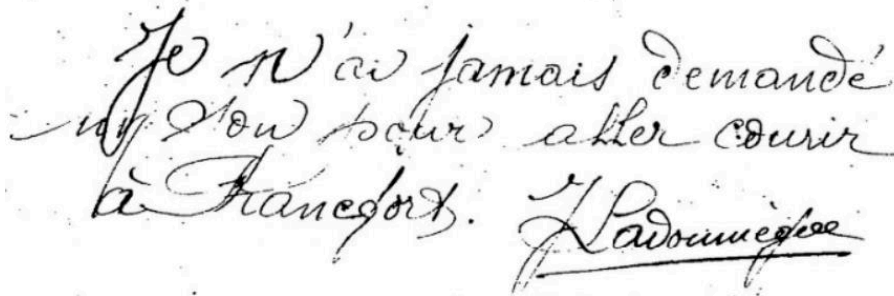 Je n'ai jamais demandé
un sou pour aller courir
à Francfort. J Ladoumègue